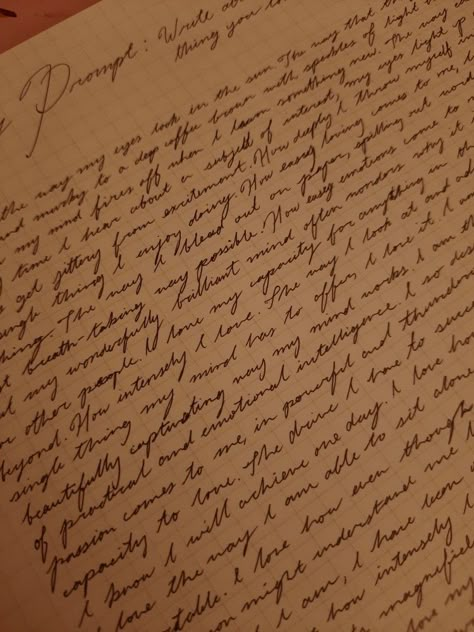 Prompt: Write
thing you
the way my eyes look in the sun. The way that
and murky to a deep coffee brown with speckles of light
my mind fires off when I learn something new. The way
time I hear about a subject of interest, my eyes light up
get jittery from excitement. How deeply I throw myself in
single thing I enjoy doing. How easy loving comes to me,
thing. The way I bleed out on paper, spilling out
breath-taking way possible. How easy emotions come to
my wonderfully brilliant mind often wonders why it
other people. I love my capacity for anything in
beyond. How intensely I love. The way I look at and
single thing my mind has to offer, I love it. I
beautifully captivating way my mind works. I am
of practical and emotional intelligence. I so
passion comes to me, in powerful and
capacity to love. The drive I have to
I know I will achieve one day. I love
love the way I am able to sit alone
I love how even though
might understand me
I am, I have been
how intensely I
magnified
love my